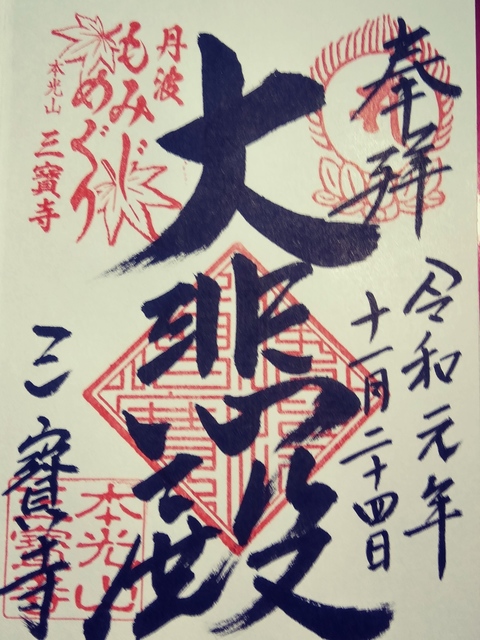 奉拜
令和元年
十一月二十四日
大悲殿
三寳寺
丹波
もみじ
めぐり
本光山
三寳寺
本光山
三寳寺